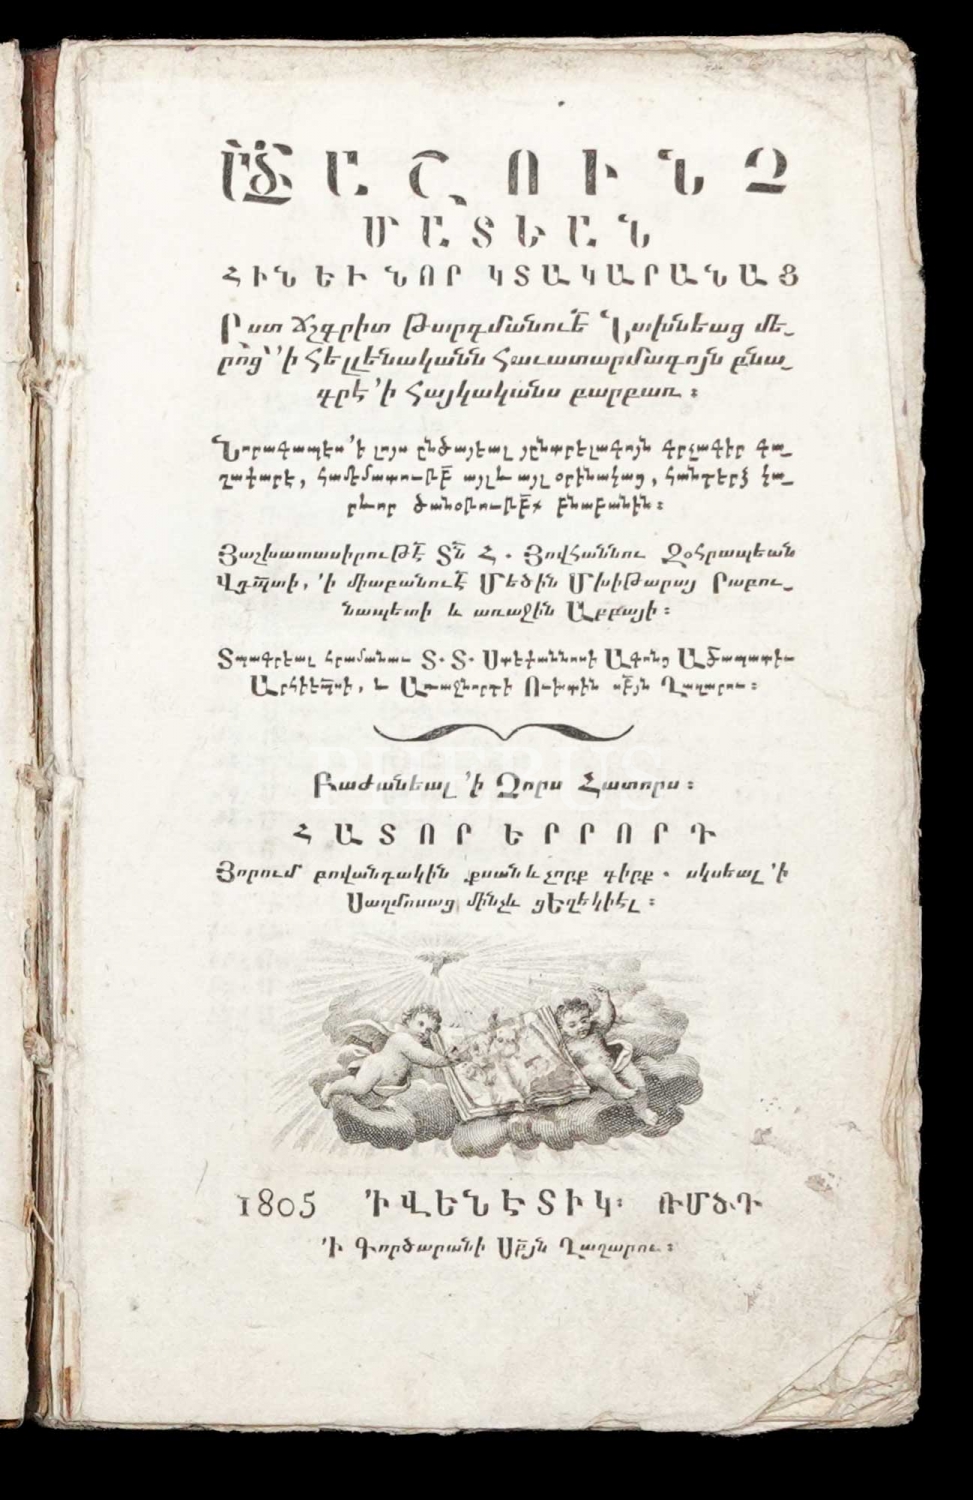 ԱՍՏՈՒԱԾԱՇՈՒՆՉ
ՄԱՏԵԱՆ
ՀԻՆ ԵՒ ՆՈՐ ԿՏԱԿԱՐԱՆԱՑ
Ըստ Ճշգրիտ Թարգմանուե՟ Նախնեաց մե֊
րոց՝ ՚ի Հելլենականն Հաւատարմագոյն բնա֊
գրէ ՚ի Հայկականս բարբառ ։
Նորագապես ՚ի լոյս ընծայեալ յընտրելագոյն գրչագիր գա֊
ղափարէ, համեմատուբ՟ այլևայլ օրինակաց, հանդերձ կա֊
րևոր ծանօթուբ՟ք բնաբանին ։
Յաշխատասիրութէ՟ Տն՟ Հ . Յովհաննու Զօհրապեան
Վրդ՟պտի, ՚ի միաբանուէ՟ Մեծին Մխիթարայ Րաբու֊
նապետի և առաջին Աբբայի ։
Տպագրեալ հրամանաւ Տ. Տ. Ստեփաննոսի Ագոնց
Արհիեպ՟սի, և Առաջնորդի Ուխտին սբ՟յն Ղազարու ։
Բաժանեալ ՚ի Չորս Հատորս ։
ՀԱՏՈՐ ԵՐՐՈՐԴ
Յորում բովանդակին քսան և չորք գիրք . սկսեալ ՚ի
Սաղմոսաց մինչև ցԵզեկիէլ ։
1805 ՚Ի ՎԵՆԵՏԻԿ. ՌՄԾԴ
՚Ի Գործարանի Սբ՟յն Ղազարու ։